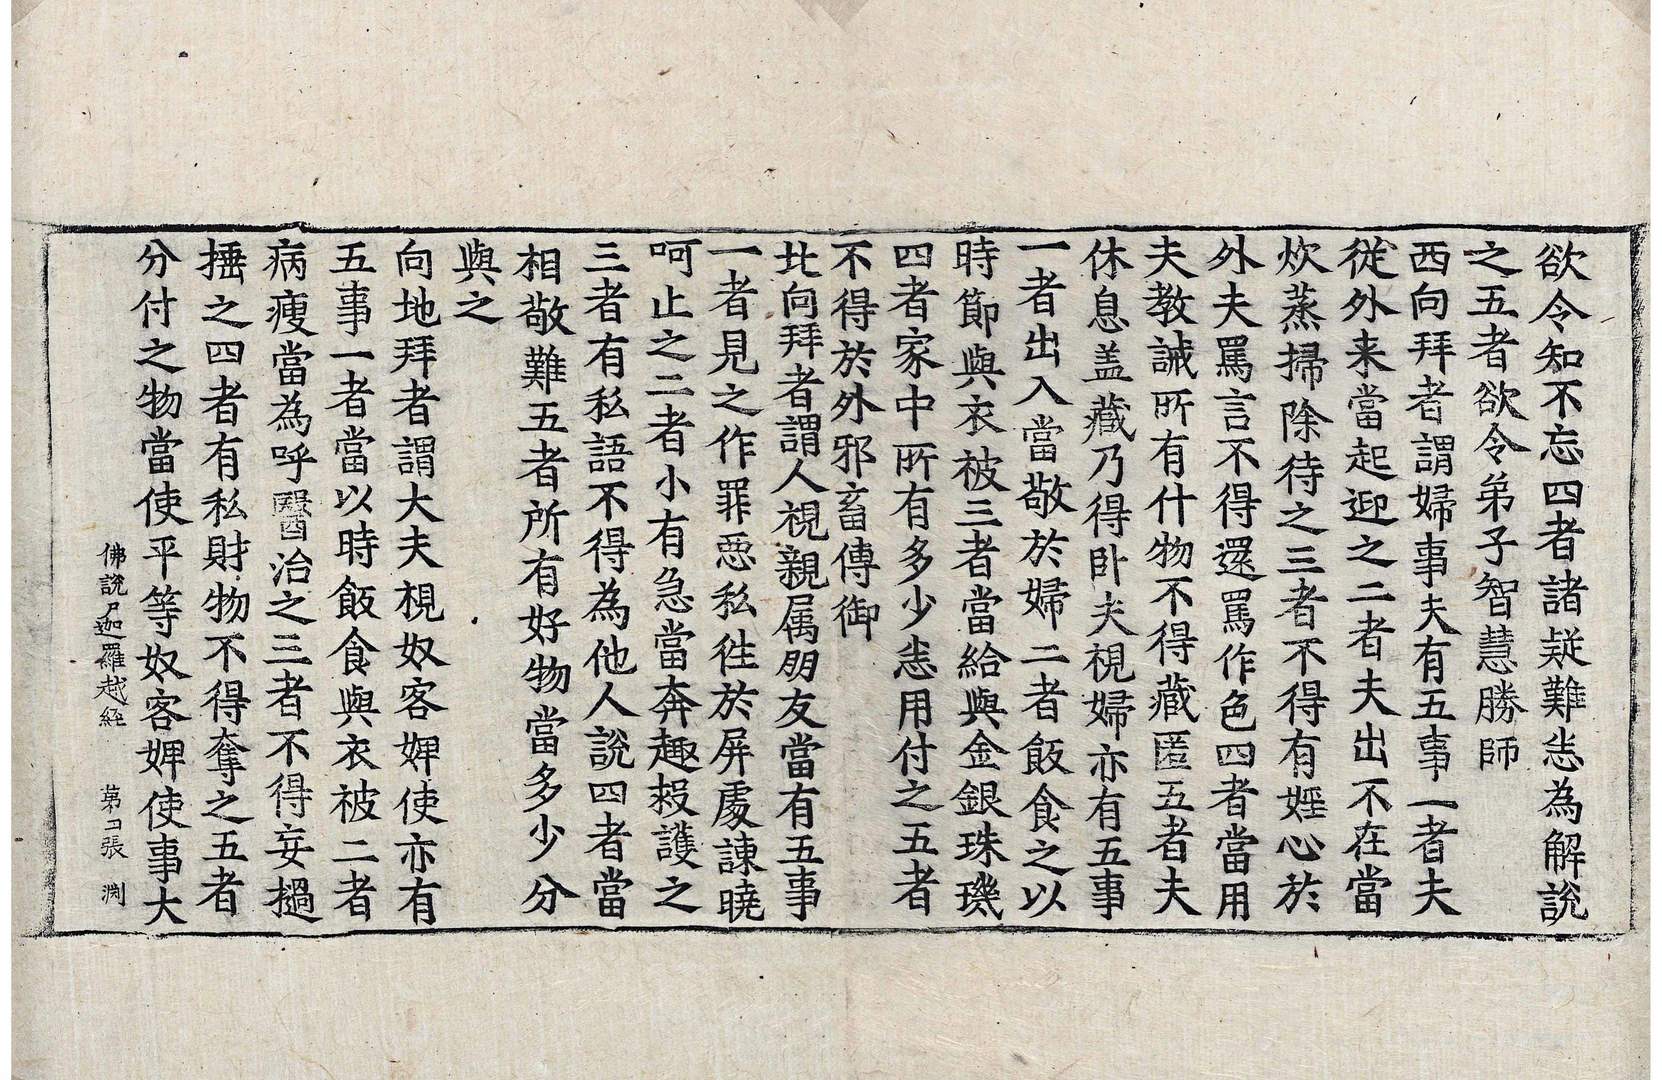 欲令知不忘四者諸疑難悉為解說
之五者欲令弟子智慧勝師
西向拜者謂婦事夫有五事一者夫
従外来當起迎之二者夫出不在當
炊蒸掃除待之三者不得有婬心於
外夫罵言不得還罵作色四者當用
夫教誡所有什物不得藏匿五者夫
休息盖藏乃得卧夫視婦亦有五事
一者出入當敬於婦二者飯食之以
時節與衣被三者當給與金銀珠璣
四者家中所有多少悉用付之五者
不得於外邪畜傳御
北向拜者謂人視親属朋友當有五事
一者見之作罪惡私往於屏處諫曉
呵止之二者小有急當奔趣救護之
三者有私語不得為他人說四者當
相敬難五者所有好物當多少分
與之
向地拜者謂大夫視奴客婢使亦有
五事一者當以時飯食與衣被二者
病瘦當為呼醫治之三者不得妄撾
捶之四者有私財物不得奪之五者
分付之物當使平等奴客婢使事大
佛說尸迦羅越経 第四張 渕